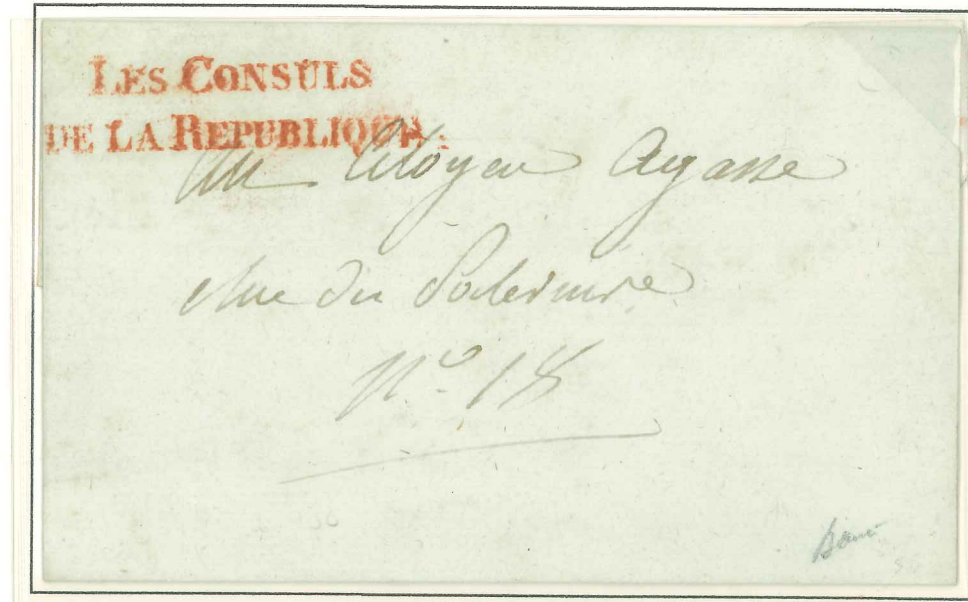 LES CONSULS
DE LA REPUBLIQUE.
Au Citoyen Agasse
Rue du
N.o 18